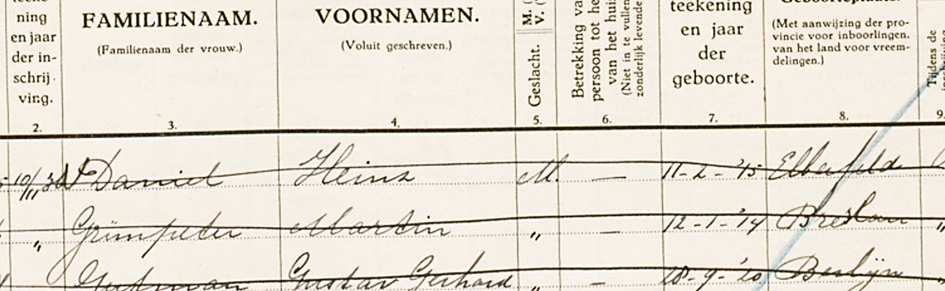 ning
en jaar
der in-
schrij-
ving.
2.
FAMILIENAAM.
(Familienaam der vrouw.)
3.
VOORNAMEN.
(Voluit geschreven.)
4.
M. (
V. (
Geslacht.
5.
Betrekking va
persoon tot he
van het huis
(Niet in te vullen
zonderlijk levende
6.
teekening
en jaar
der
geboorte.
7.
(Met aanwijzing der pro-
vincie voor inboorlingen.
van het land voor vreem-
delingen.)
8.
Tijdens de
9.
Daniel Heinz M. — 11-2-'15 Elberfeld
„ Grünpeter Martin „ — 12-1-'14 Breslau „
Gutman Gustav Gerhard „ — 18-9-'20 Berlijn „